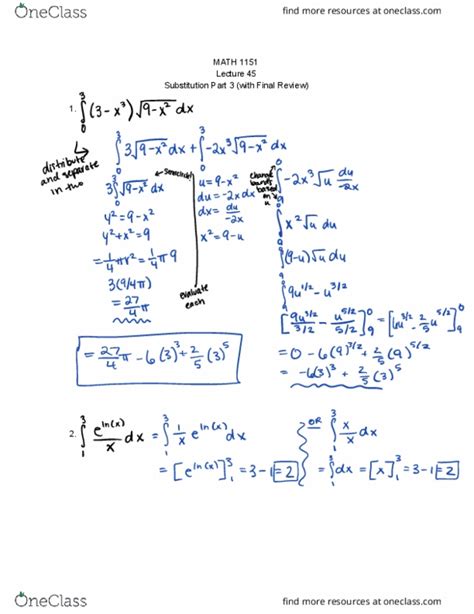 OneClass
find more resources at oneclass.com
MATH 1151
Lecture 45
Substitution Part 3 (with Final Review)
1. ∫₀³ (3-x³) √(9-x²) dx
distribute and separate in two
∫₀³ 3√(9-x²) dx + ∫₀³ -2x³√(9-x²) dx
3∫₀³ √(9-x²) dx
y² = 9-x²
y²+x² = 9
= 1/4 πr² = 1/4 π9
3(9/4π)
= 27/4 π
u = 9-x²
du = -2x dx
dx = du/-2x
x² = 9-u
evaluate each
change bounds based on u
∫₉⁰ -2x³ √u du/-2x
∫₉⁰ x² √u du
∫₉⁰ (9-u)√u du
∫₉⁰ 9u^(1/2) - u^(3/2)
[9u^(3/2)/(3/2) - u^(5/2)/(5/2)]₉⁰ = [6u^(3/2) - 2/5 u^(5/2)]₉⁰
= 0 - 6(9)^(3/2) + 2/5 (9)^(5/2)
= -6(3)³ + 2/5 (3)⁵
= 27/4 π - 6(3)³ + 2/5 (3)⁵
2. ∫₁³ e^(ln(x))/x dx = ∫₁³ 1/x e^(ln(x)) dx
= [e^(ln(x))]₁³ = 3-1 = 2
OR ∫₁³ x/x dx
= ∫₁³ dx = [x]₁³ = 3-1 = 2
OneClass
find more resources at oneclass.com